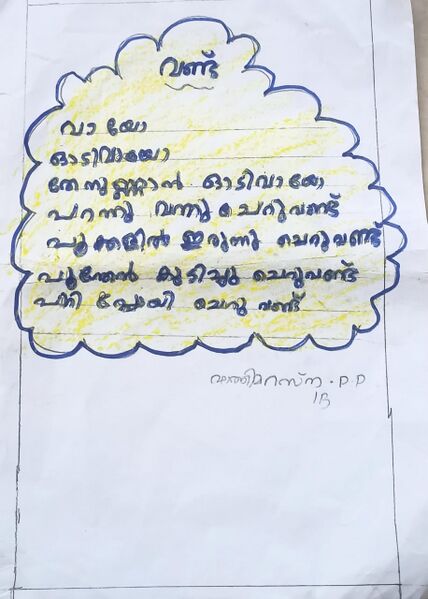 വണ്ട്
വായോ
ഓടിവായോ
തേനുണ്ണാൻ ഓടിവായോ
പറന്നു വന്നു ചെറുവണ്ട്
പൂക്കളിൽ ഇരുന്നു ചെറുവണ്ട്
പൂന്തേൻ കുടിച്ചു ചെറുവണ്ട്
പാറി പ്പോയി ചെറു വണ്ട്
ഫാത്തിമറസ്ന . P P
1B